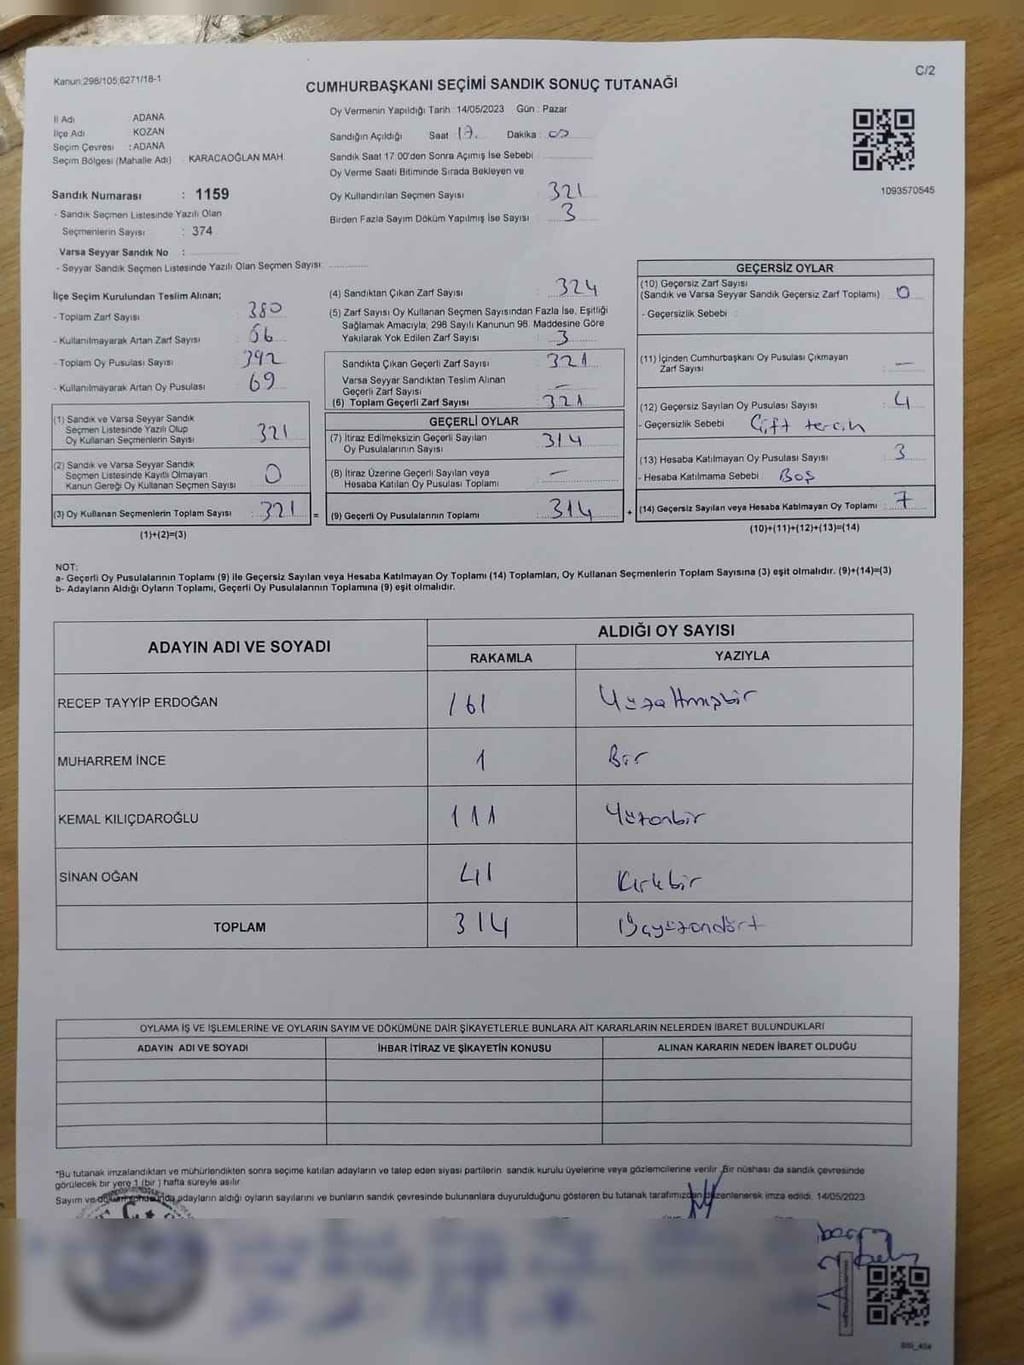 Kanun:298/105;6271/18-1
C/2
CUMHURBAŞKANI SEÇİMİ SANDIK SONUÇ TUTANAĞI
İl Adı ADANA
İlçe Adı KOZAN
Seçim Çevresi : ADANA
Seçim Bölgesi (Mahalle Adı) : KARACAOĞLAN MAH.
Sandık Numarası : 1159
- Sandık Seçmen Listesinde Yazılı Olan
Seçmenlerin Sayısı : 374
Varsa Seyyar Sandık No :
- Seyyar Sandık Seçmen Listesinde Yazılı Olan Seçmen Sayısı:
Oy Vermenin Yapıldığı Tarih :14/05/2023 Gün : Pazar
Sandığın Açıldığı Saat 17. Dakika : 00
Sandık Saat 17:00'den Sonra Açımış İse Sebebi :
Oy Verme Saati Bitiminde Sırada Bekleyen ve
Oy Kullandırılan Seçmen Sayısı : 321
Birden Fazla Sayım Döküm Yapılmış İse Sayısı : 3
1093570545
İlçe Seçim Kurulundan Teslim Alınan;
- Toplam Zarf Sayısı : 380
- Kullanılmayarak Artan Zarf Sayısı : 56
- Toplam Oy Pusulası Sayısı : 392
- Kullanılmayarak Artan Oy Pusulası : 69
(1) Sandık ve Varsa Seyyar Sandık
Seçmen Listesinde Yazılı Olup
Oy Kullanan Seçmenlerin Sayısı : 321
(2) Sandık ve Varsa Seyyar Sandık
Seçmen Listesinde Kayıtlı Olmayan
Kanun Gereği Oy Kullanan Seçmen Sayısı : 0
(3) Oy Kullanan Seçmenlerin Toplam Sayısı : 321 =
(1)+(2)=(3)
(4) Sandıktan Çıkan Zarf Sayısı : 324
(5) Zarf Sayısı Oy Kullanan Seçmen Sayısından Fazla İse, Eşitliği
Sağlamak Amacıyla; 298 Sayılı Kanunun 98. Maddesine Göre
Yakılarak Yok Edilen Zarf Sayısı : 3
Sandıkta Çıkan Geçerli Zarf Sayısı : 321
Varsa Seyyar Sandıktan Teslim Alınan
Geçerli Zarf Sayısı : —
(6) Toplam Geçerli Zarf Sayısı : 321
GEÇERLİ OYLAR
(7) İtiraz Edilmeksizin Geçerli Sayılan
Oy Pusulalarının Sayısı : 314
(8) İtiraz Üzerine Geçerli Sayılan veya
Hesaba Katılan Oy Pusulası Toplamı : —
(9) Geçerli Oy Pusulalarının Toplamı : 314 +
GEÇERSİZ OYLAR
(10) Geçersiz Zarf Sayısı
(Sandık ve Varsa Seyyar Sandık Geçersiz Zarf Toplamı) : 0
- Geçersizlik Sebebi :
(11) İçinden Cumhurbaşkanı Oy Pusulası Çıkmayan
Zarf Sayısı : —
(12) Geçersiz Sayılan Oy Pusulası Sayısı : 4
- Geçersizlik Sebebi : Çift tercih
(13) Hesaba Katılmayan Oy Pusulası Sayısı : 3
- Hesaba Katılmama Sebebi : Boş
(14) Geçersiz Sayılan veya Hesaba Katılmayan Oy Toplamı : 7
(10)+(11)+(12)+(13)=(14)
NOT:
a- Geçerli Oy Pusulalarının Toplamı (9) ile Geçersiz Sayılan veya Hesaba Katılmayan Oy Toplamı (14) Toplamları, Oy Kullanan Seçmenlerin Toplam Sayısına (3) eşit olmalıdır. (9)+(14)=(3)
b- Adayların Aldığı Oyların Toplamı, Geçerli Oy Pusulalarının Toplamına (9) eşit olmalıdır.
ADAYIN ADI VE SOYADI
ALDIĞI OY SAYISI
RAKAMLA YAZIYLA
RECEP TAYYİP ERDOĞAN 161 Yüzaltmışbir
MUHARREM İNCE 1 Bir
KEMAL KILIÇDAROĞLU 111 Yüzonbir
SİNAN OĞAN 41 Kırkbir
TOPLAM 314 Üçyüzondört
OYLAMA İŞ VE İŞLEMLERİNE VE OYLARIN SAYIM VE DÖKÜMÜNE DAİR ŞİKAYETLERLE BUNLARA AİT KARARLARIN NELERDEN İBARET BULUNDUKLARI
ADAYIN ADI VE SOYADI İHBAR İTİRAZ VE ŞİKAYETİN KONUSU ALINAN KARARIN NEDEN İBARET OLDUĞU
*Bu tutanak imzalandıktan ve mühürlendikten sonra seçime katılan adayların ve talep eden siyasi partilerin sandık kurulu üyelerine veya gözlemcilerine verilir. Bir nüshası da sandık çevresinde
görülecek bir yere 1 (bir) hafta süreyle asılır.
Sayım ve adayların aldığı oyların sayılarını ve bunların sandık çevresinde bulunanlara duyurulduğunu gösteren bu tutanak tarafımızdan düzenlenerek imza edildi. 14/05/2023